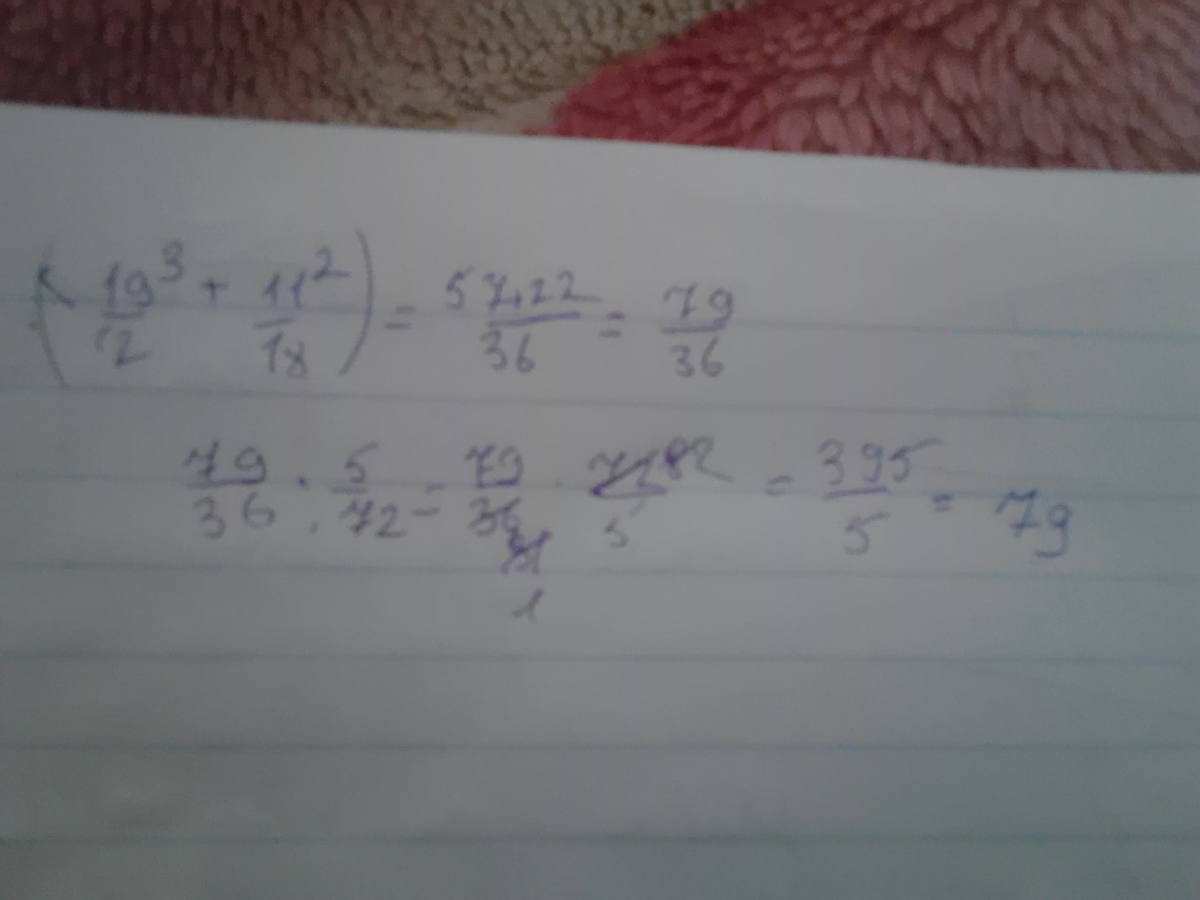 ( 19/12 ³ + 11/18 ² ) = 57+22/36 = 79/36
79/36 : 5/72 = 79/36 · 72/5 = 395/5 = 79
1